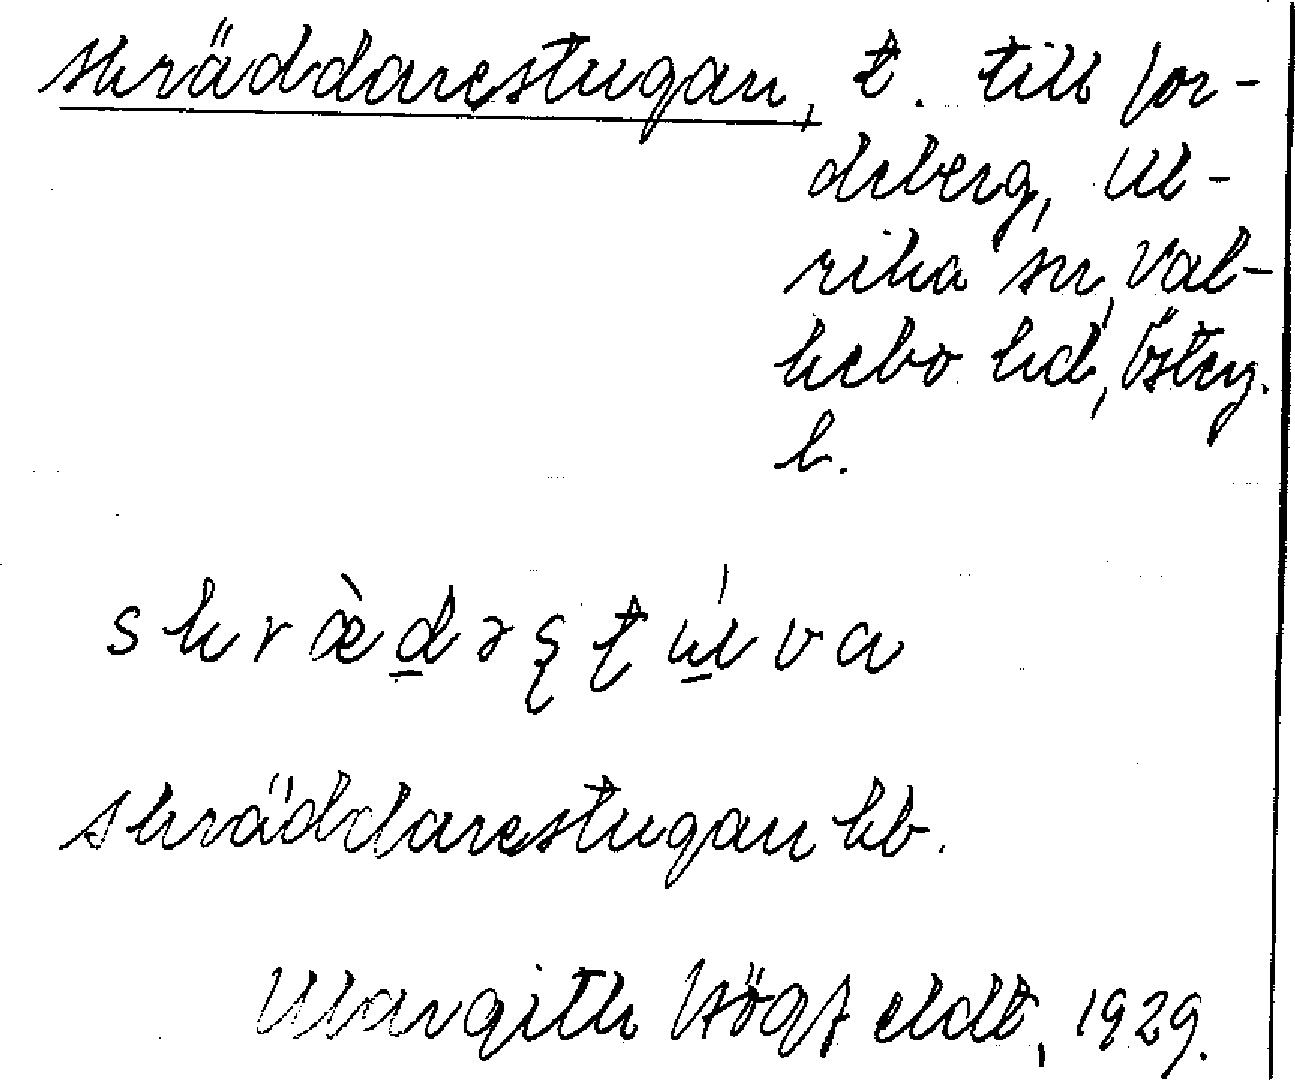 Skräddarestugan, t. till For-
dsberg, Ul-
rika sn, Val-
kebo hd, Österg.
l.
skræ̀dəʂtúva
Skräddarestugan kb.
Margith Högfeldt, 1929.